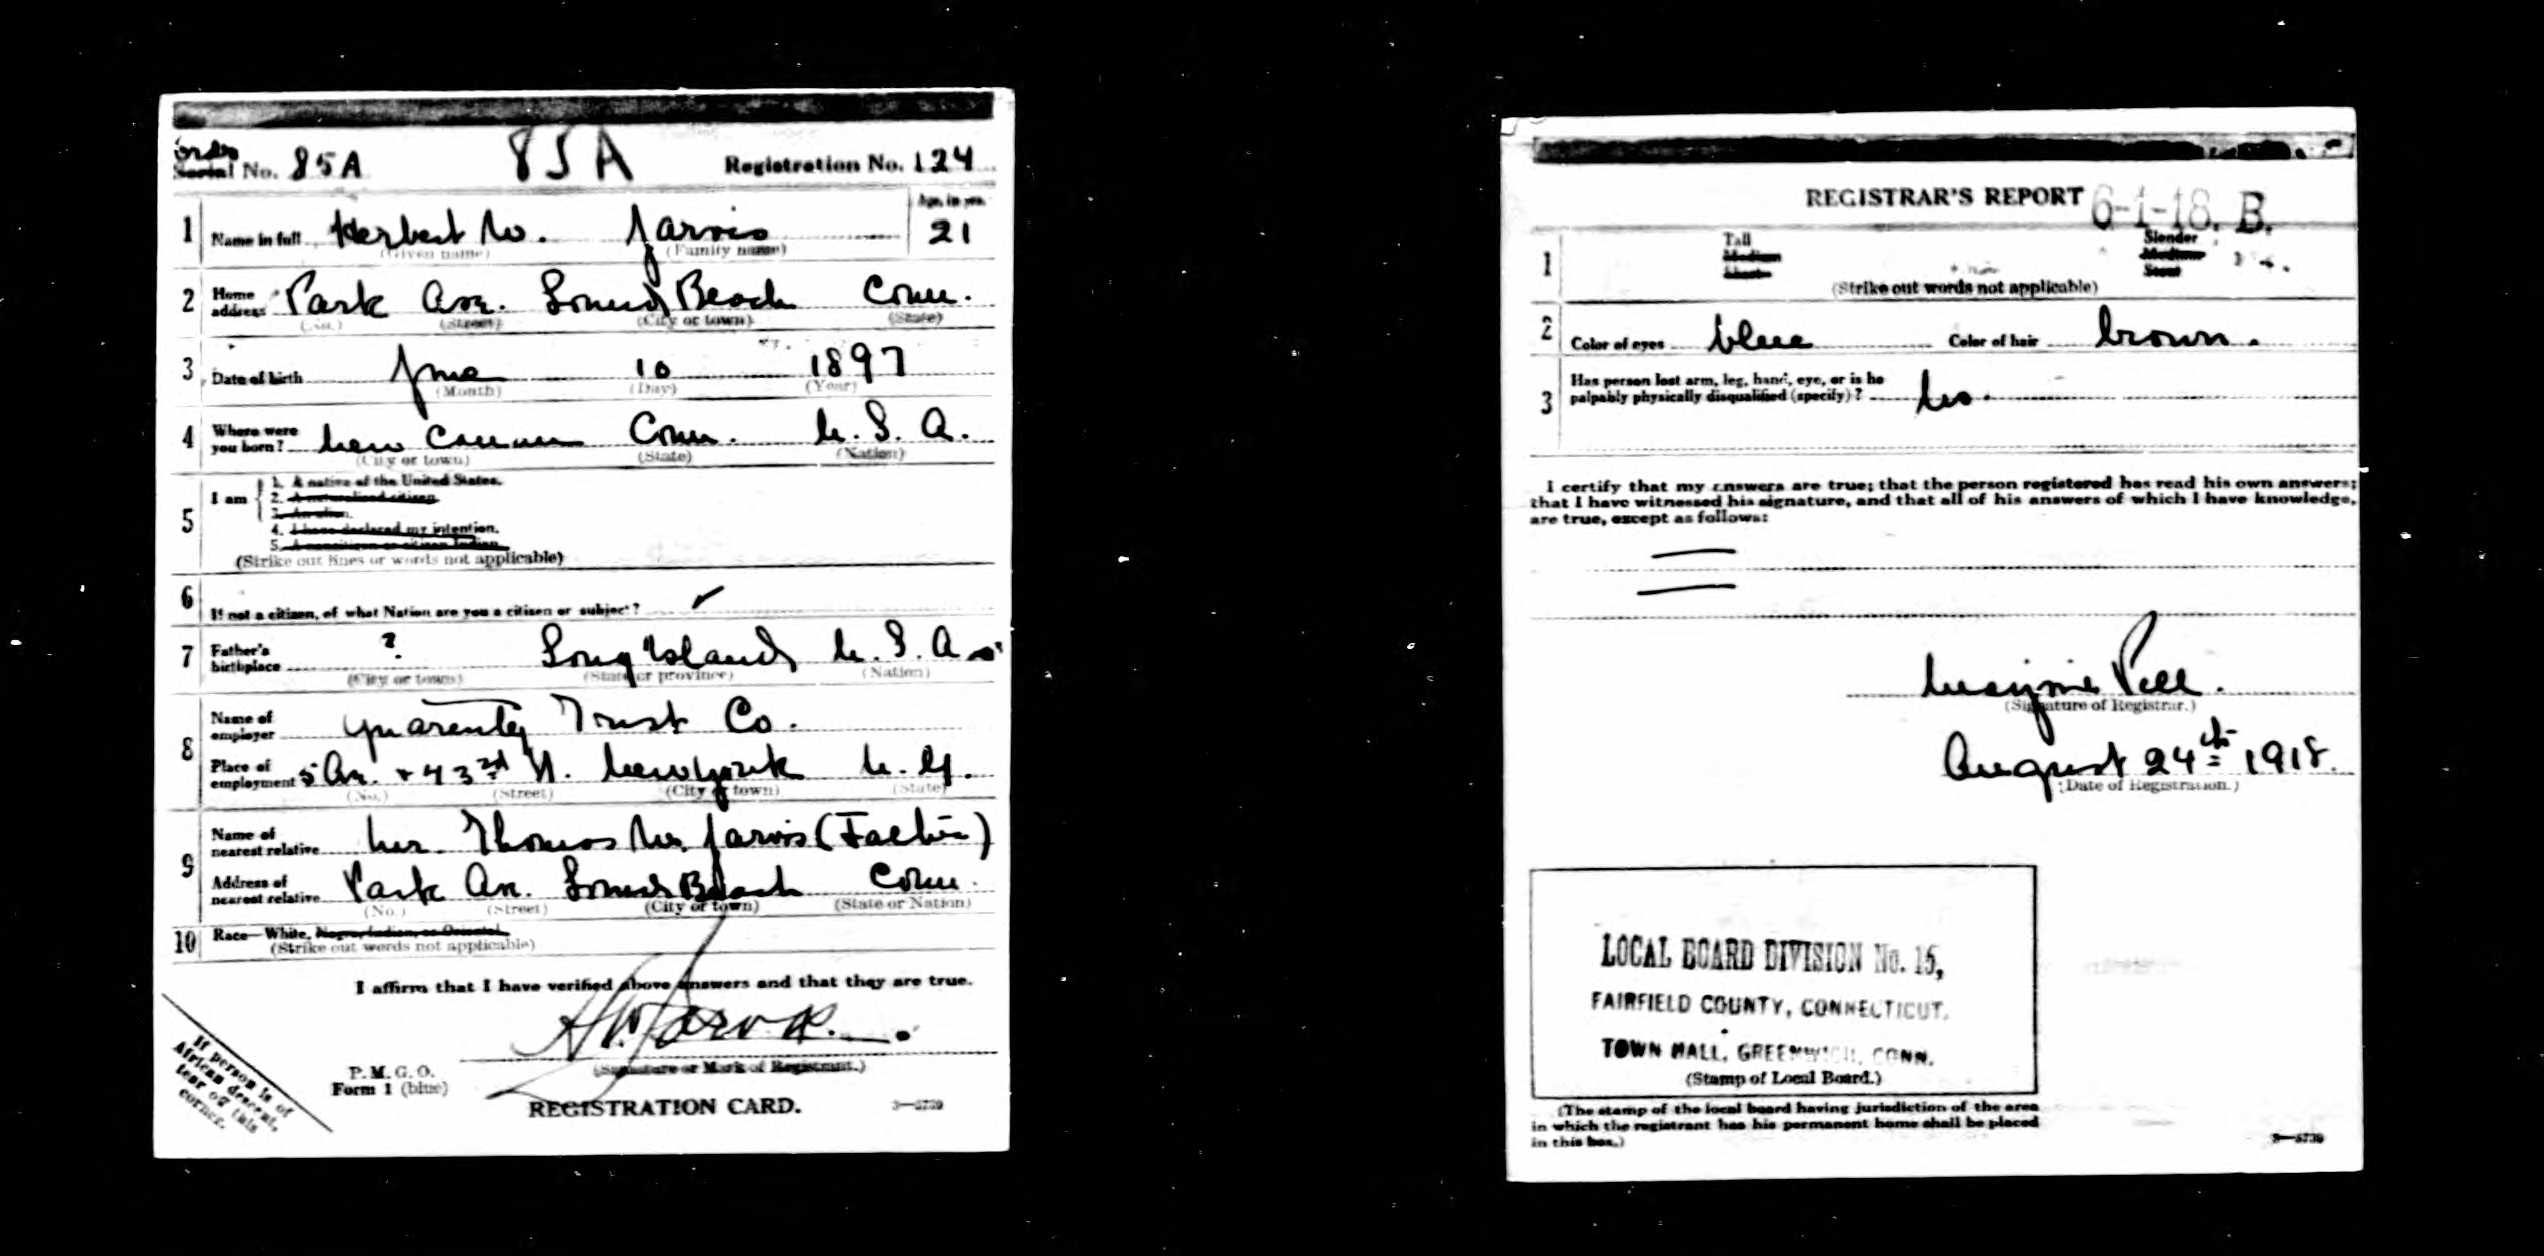 Order
Serial No. 85A 85A Registration No. 124
Age, in yrs.
1 Name in full Herbert W. Jarvis 21
(Given name) (Family name)
2 Home address Park Ave. Sound Beach Conn.
(No.) (Street) (City or town) (State)
3 Date of birth June 10 1897
(Month) (Day) (Year)
4 Where were you born? New Canaan Conn. U. S. A.
(City or town) (State) (Nation)
5 I am
1. A native of the United States.
2. A naturalized citizen.
3. An alien.
4. I have declared my intention.
5. A noncitizen or citizen Indian.
(Strike out lines or words not applicable)
6 If not a citizen, of what Nation are you a citizen or subject? ✓
7 Father's birthplace ? Long Island U. S. A.
(City or town) (State or province) (Nation)
8 Name of employer Guarenty Trust Co.
Place of employment 5 Av. + 43rd St. New York N. Y.
(No.) (Street) (City or town) (State)
9 Name of nearest relative Mr. Thomas W. Jarvis (Father)
Address of nearest relative Park Av. Sound Beach Conn.
(No.) (Street) (City or town) (State or Nation)
10 Race—White, Negro, Indian, or Oriental.
(Strike out words not applicable)
I affirm that I have verified above answers and that they are true.
H W Jarvis.
(Signature or Mark of Registrant.)
P. M. G. O.
Form 1 (blue)
REGISTRATION CARD. 3—5739
If person is of
African descent,
tear off this
corner.
REGISTRAR'S REPORT 6-1-18. B.
1 Tall Slender
Medium Medium
Short Stout
(Strike out words not applicable)
2 Color of eyes blue Color of hair brown.
3 Has person lost arm, leg, hand, eye, or is he
palpably physically disqualified (specify)? No.
I certify that my answers are true; that the person registered has read his own answers;
that I have witnessed his signature, and that all of his answers of which I have knowledge,
are true, except as follows:
Pell.
(Signature of Registrar.)
August 24th 1918.
(Date of Registration.)
LOCAL BOARD DIVISION No. 15,
FAIRFIELD COUNTY, CONNECTICUT,
TOWN HALL, GREENWICH, CONN.
(Stamp of Local Board.)
(The stamp of the local board having jurisdiction of the area
in which the registrant has his permanent home shall be placed
in this box.)
3—5739